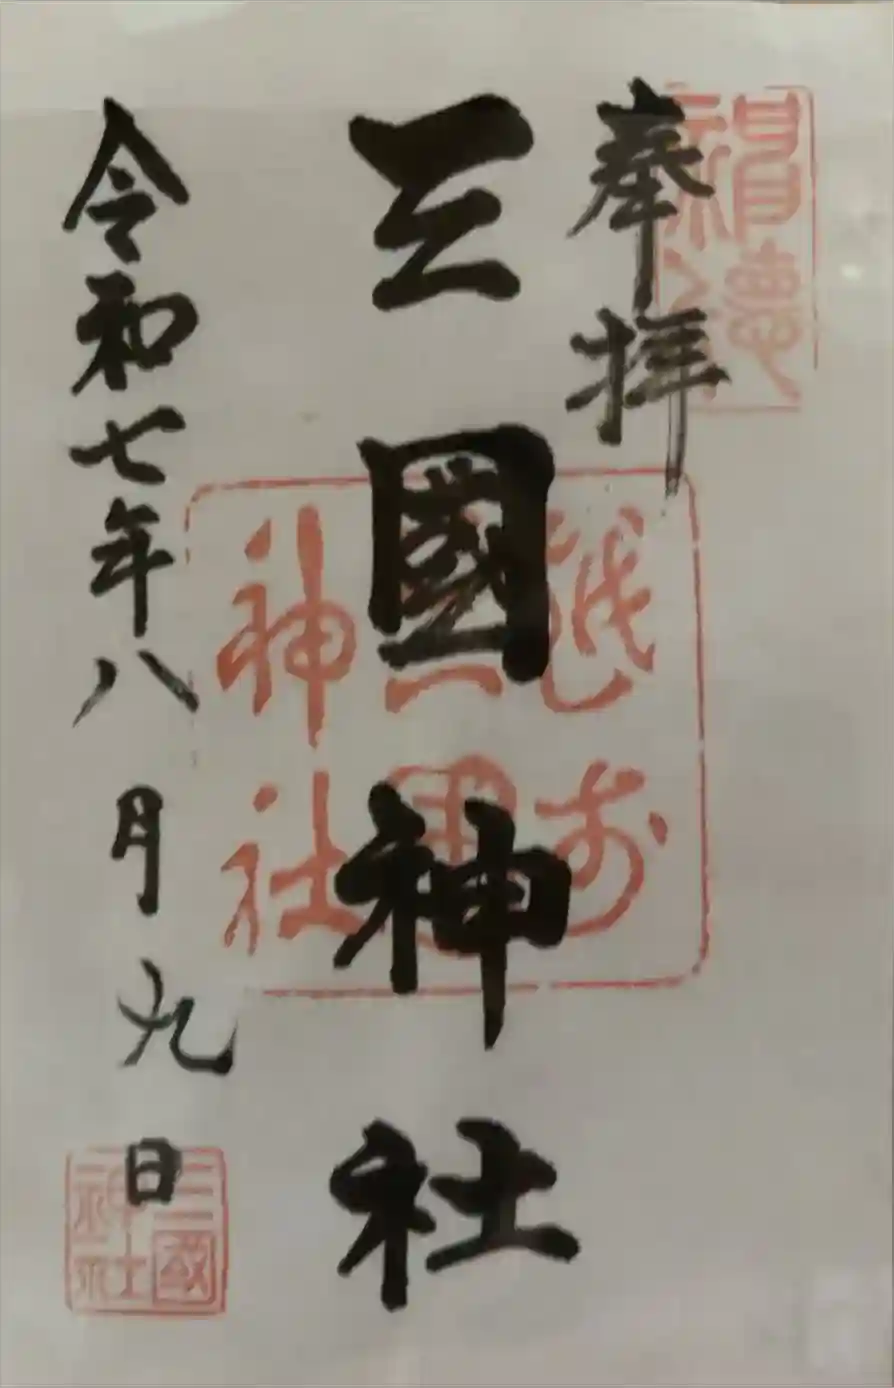 奉拝
三國神社
令和七年八月九日
越前
三国
神社
三國
神社